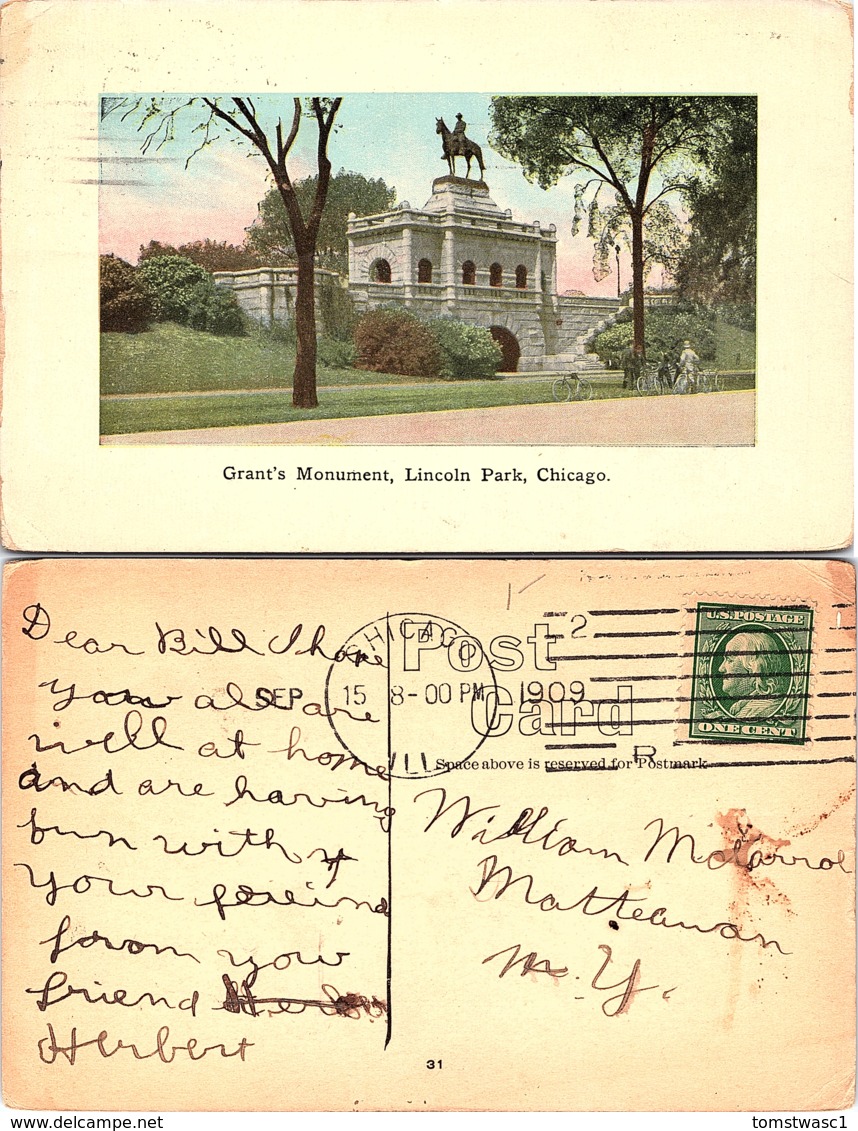 Grant's Monument, Lincoln Park, Chicago.
Dear Bill I hope
you all are
well at home
and are having
fun with
your freind
from your
friend
Herbert
CHICAGO
SEP 15 8-00 PM 1909
ILL.
2
R
Post
Card
Space above is reserved for Postmark
U.S. POSTAGE
ONE CENT
William McCarrol
Matteawan
N. Y.
31
tomstwasc1